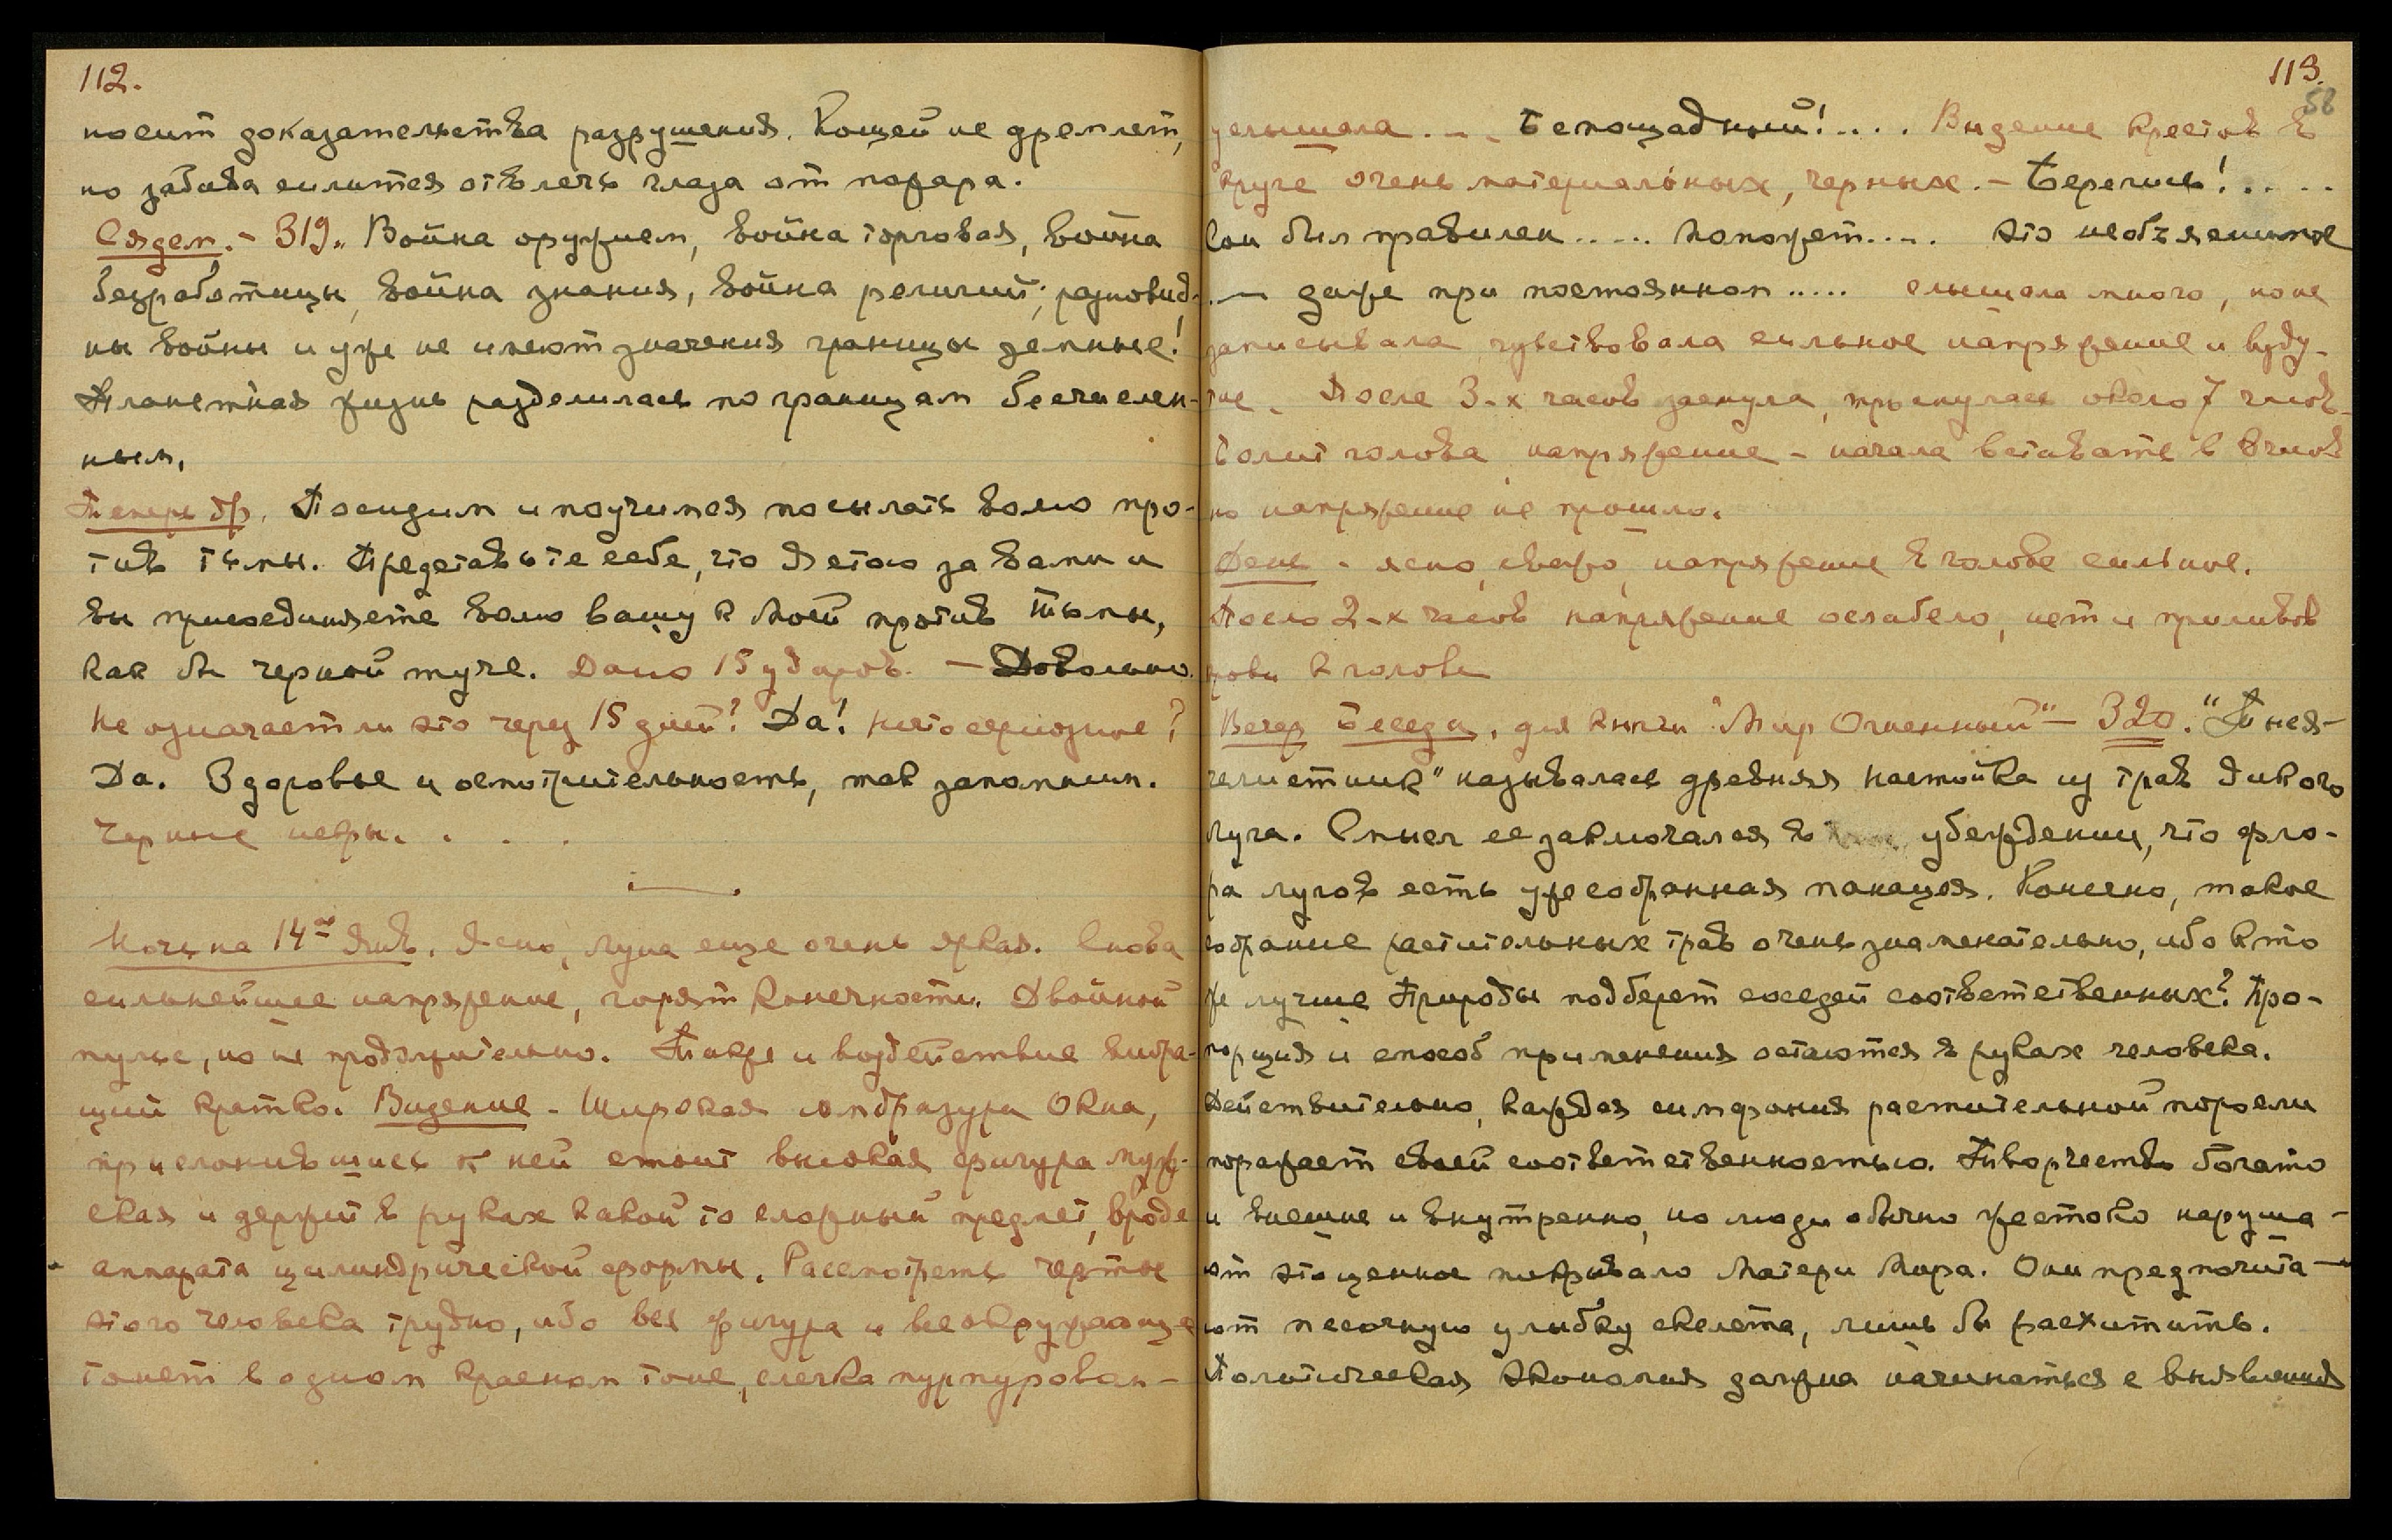 112.
носит доказательства разрушения. Кощей не дремлет,
но забивa силится отвлечь глаза от пожара.
Сядем. - 319. Война оружием, война торговая, война
безработицы, война знания, война религий; разновид-
ны войны и уже не имеют значения границы земные!
Планетная жизнь разделилась по границам бесчислен-
ным.
Теперь др. Посидим и поучимся посылать волю про-
тив тьмы. Представьте себе, что Я стою за вами и
вы присоединяете волю вашу к Моей против тьмы,
как бы черной туче. Дано 15 ударов. - Довольно.
Не означает ли это через 15 дней? Да! Нечто серьозное?
Да. Здоровье и осмотрительность, так запомним.
Черные искры. . . .
Ночь на 14ое Янв. Ясно, луна еще очень яркая. Снова
сильнейшее напряжение, горят конечности. Двойной
пульс, но не продолжительно. Также и воздействие вибра-
ций кратко. Видение - Широкая амбразура окна,
прислонившись к ней стоит высокая фигура муж-
ская и держит в руках какой то сложный предмет, вроде
аппарата цилиндрической формы. Рассмотреть черты
этого человека трудно, ибо вся фигура и все окружающее
тонет в одном красном тоне, слегка пурпурован-
113.
58
услышала . - - Беспощадный! .... Видение крестов в
круге очень материальных, черных. - Берегись! .....
Сон был правилен ..... Поможет ..... это необъяснимое
.. — даже при постоянном ..... слышала много, но не
записывала, чувствовала сильное напряжение и взду-
тие. После 3-х часов заснула, проснулась около 7 часов.
Болит голова, напряжение - начала вставать в 8 часов
но напряжение не прошло.
День - ясно, свежо, напряжение в голове сильное.
После 2-х часов напряжение ослабело, нет и приливов
крови к голове
Вечер Беседы, для книги "Мир Огненный" - 320. "Пчея-
"называлась древняя настойка из трав дикого
луга. Смысл ее заключался в убеждении, что фло-
ра лугов есть уже собранная панацея. Конечно, такое
собрание растительных трав очень знаменательно, ибо кто
же лучше Природы подберет соседей соответственных? Про-
порция и способ применения остаются в руках человека.
Действительно, каждая симфония растительной поросли
поражает своей соответственностью. Творчество богато
и внешне и внутренно, но люди обычно жестоко наруша-
ют это ценное покрывало Матери Мира. Они предпочита-
ют песочную улыбку скелета, лишь бы расхитить.
Политическая экономия должна начинаться с выявления